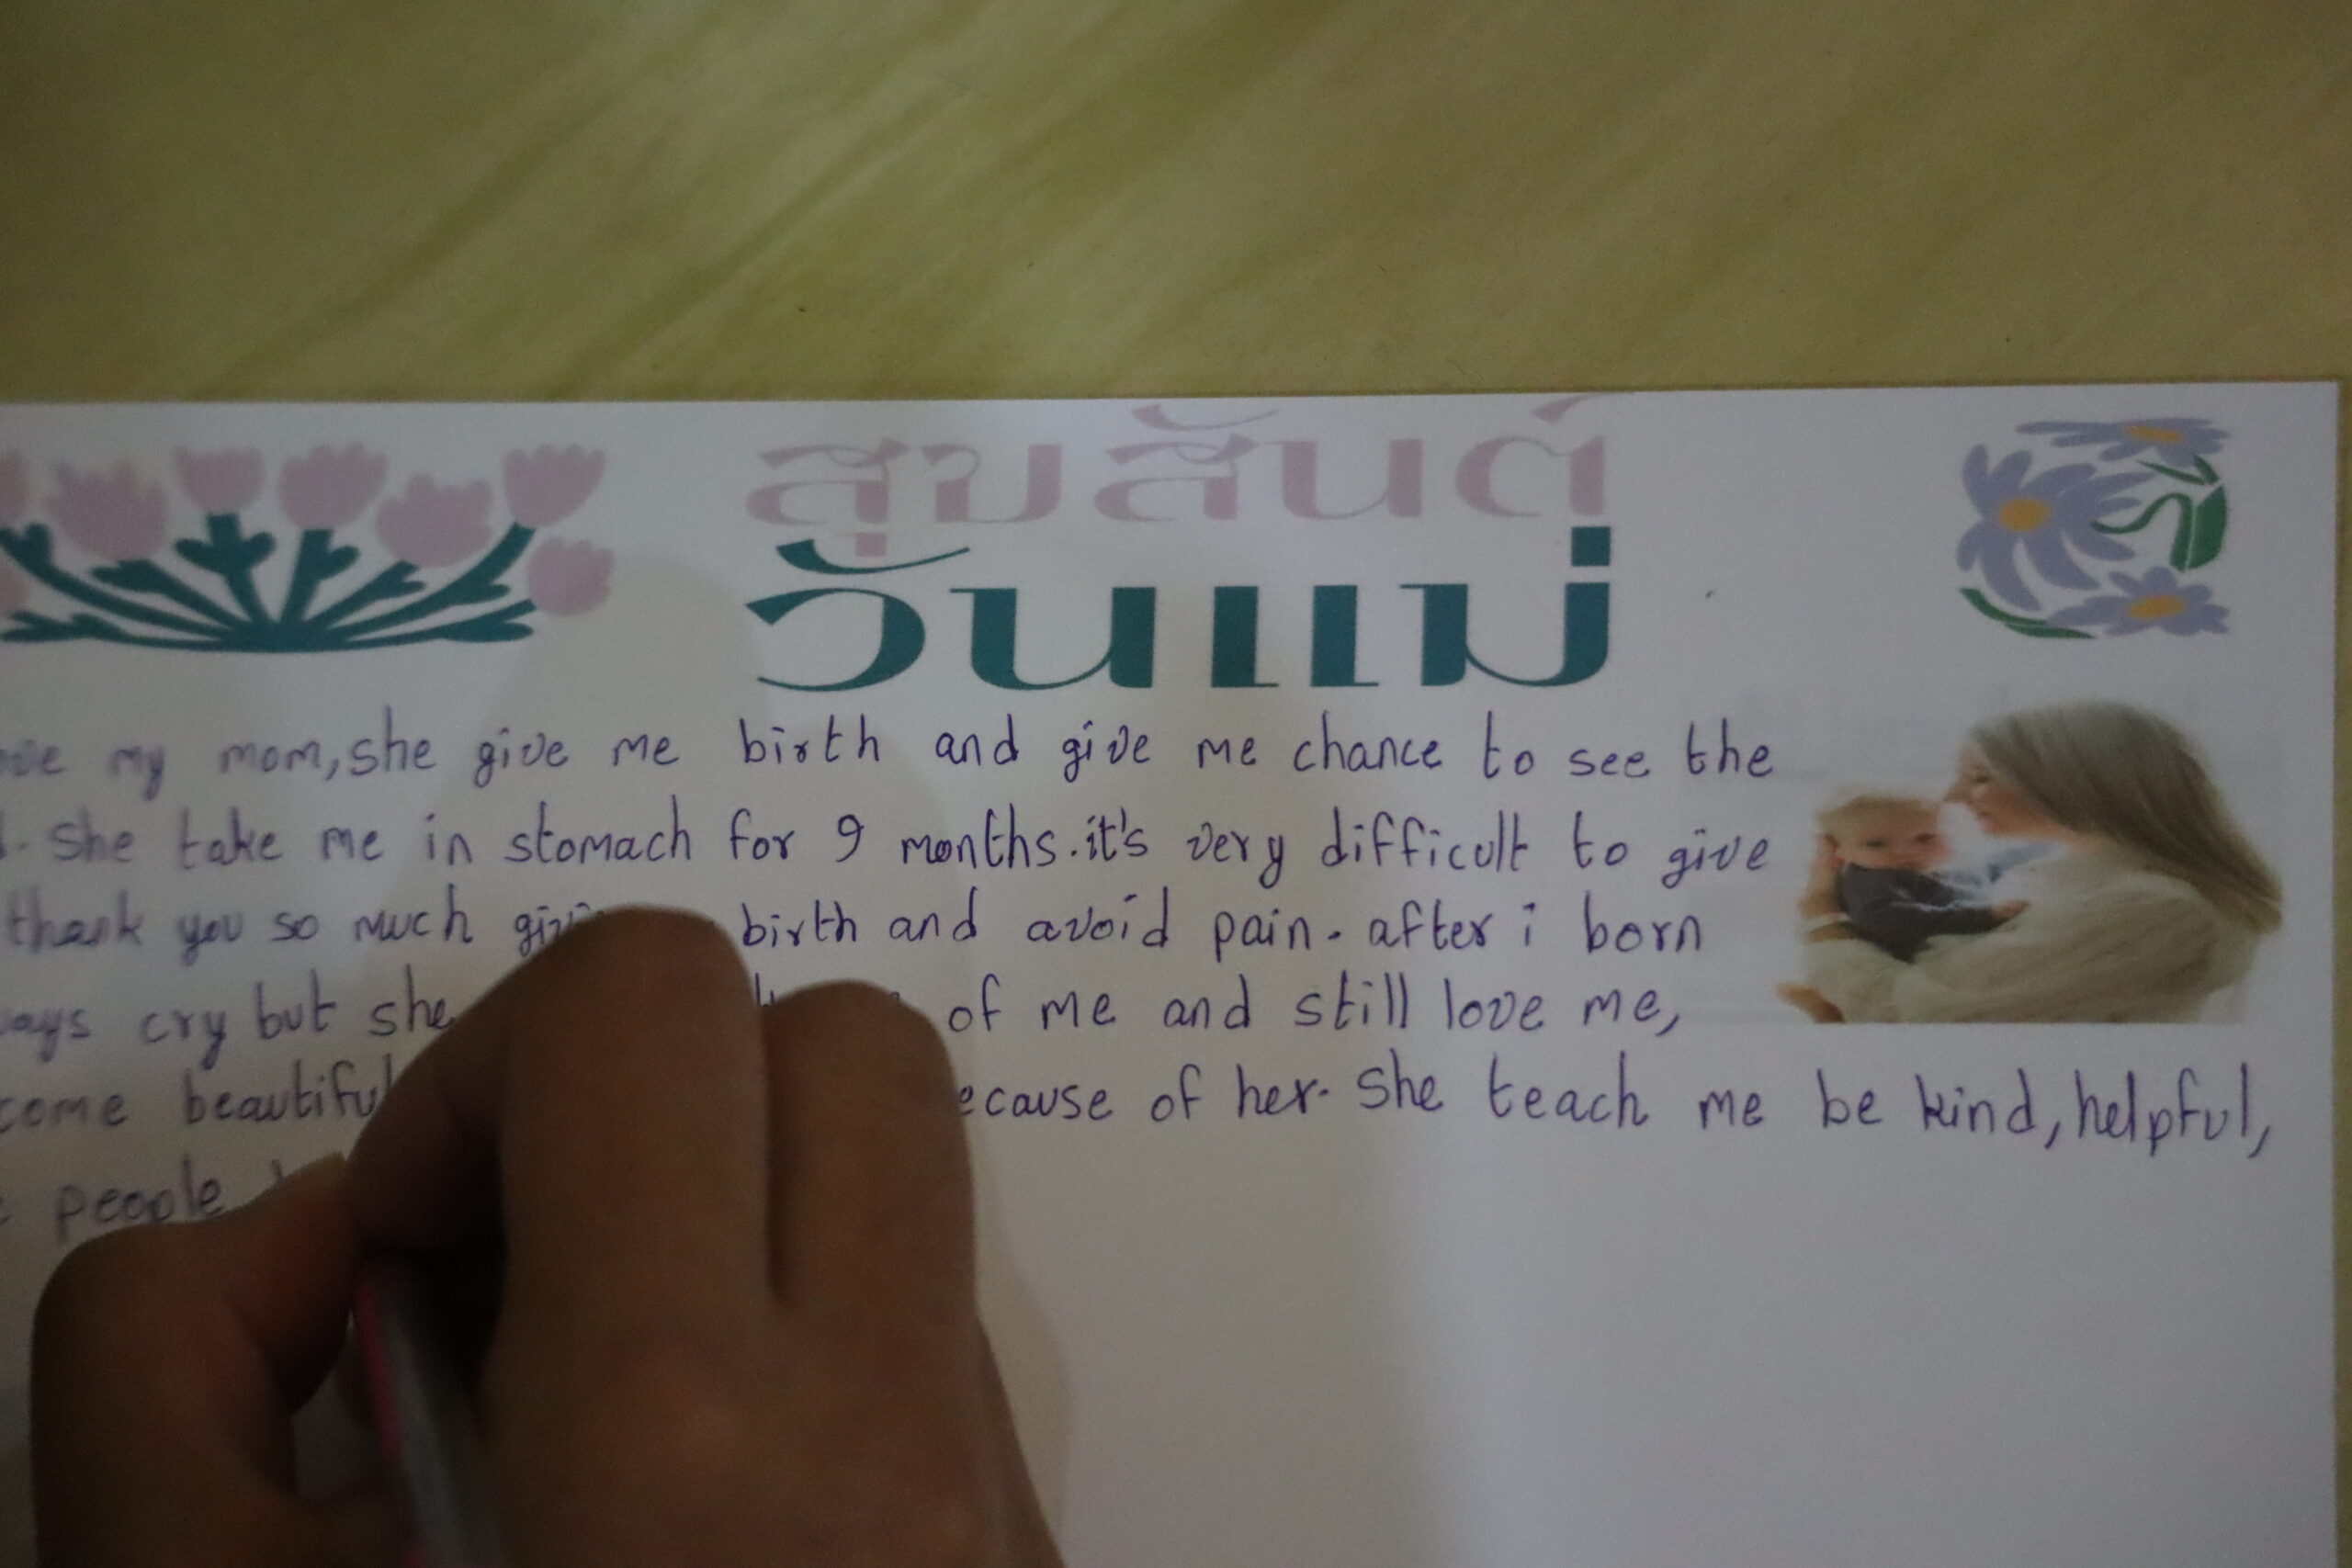 สุขสันต์
วันแม่
my mom, she give me birth and give me chance to see the
. She take me in stomach for 9 months. it's very difficult to give
thank you so much birth and avoid pain. after i born
cry but she of me and still love me,
beautiful of her. She teach me be kind, helpful,
people